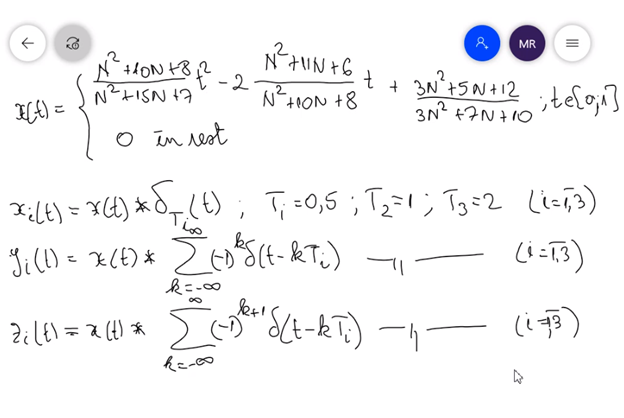 MR
x(t) = { (N²+10N+8)/(N²+15N+7) t² - 2 (N²+11N+6)/(N²+10N+8) t + (3N²+5N+12)/(3N²+7N+10) ; t∈[0,1]
0 în rest
x_i(t) = x(t) * δ_{T_i}(t) ; T_i=0,5 ; T_2=1 ; T_3=2 (i=1,3)
y_i(t) = x(t) * ∑_{k=-∞}^{∞} (-1)^k δ(t-kT_i) —〃— (i=1,3)
z_i(t) = x(t) * ∑_{k=-∞}^{∞} (-1)^{k+1} δ(t-kT_i) —〃— (i=1,3)